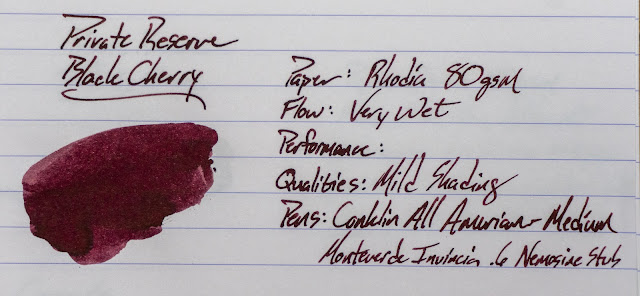 Private Reserve
Black Cherry
Paper: Rhodia 80gsm
Flow: Very Wet
Performance:
Qualities: Mild Shading
Pens: Conklin All American - Medium
Monteverde Invincia .6 Nemosine Stub